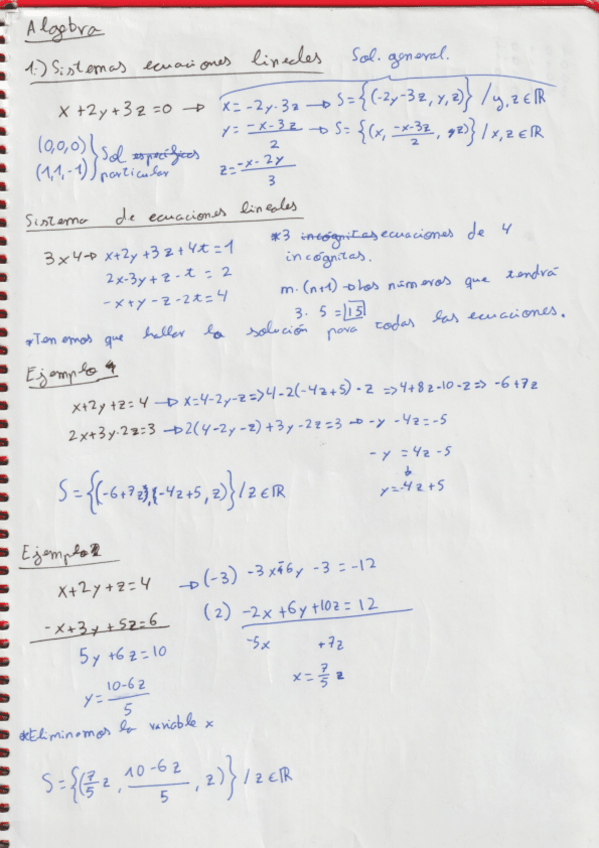 Algebra
1.) Sistemas ecuaciones lineales Sol. general.
x+2y+3z=0 → x=-2y-3z → S={(-2y-3z, y, z)} / y, z ∈ ℝ
y = (-x-3z)/2 → S={(x, (-x-3z)/2, z)} / x, z ∈ ℝ
z = (-x-2y)/3
(0,0,0)
(1,1,-1) } Sol específicas particular
Sistema de ecuaciones lineales
3x4 → x+2y+3z+4t=1
2x-3y+z-t=2
-x+y-z-2t=4
*3 incógnitas ecuaciones de 4
incógnitas.
m·(n+1) → Los números que tendrá
3·5=15
*Tenemos que hallar la solución para todas las ecuaciones.
Ejemplo 1
x+2y+z=4 → x=4-2y-z => 4-2(-4z+5)-z => 4+8z-10-z => -6+7z
2x+3y-2z=3 → 2(4-2y-z)+3y-2z=3 → -y-4z=-5
-y=4z-5
↓
y=-4z+5
S={(-6+7z), (-4z+5, z)} / z ∈ ℝ
Ejemplo 2
x+2y+z=4 → (-3) -3x-6y-3=-12
-x+3y+5z=6 (2) -2x+6y+10z=12
5y+6z=10 -5x +7z
y = (10-6z)/5 x = 7/5 z
*Eliminamos la variable x
S={(7/5 z, (10-6z)/5, z)} / z ∈ ℝ